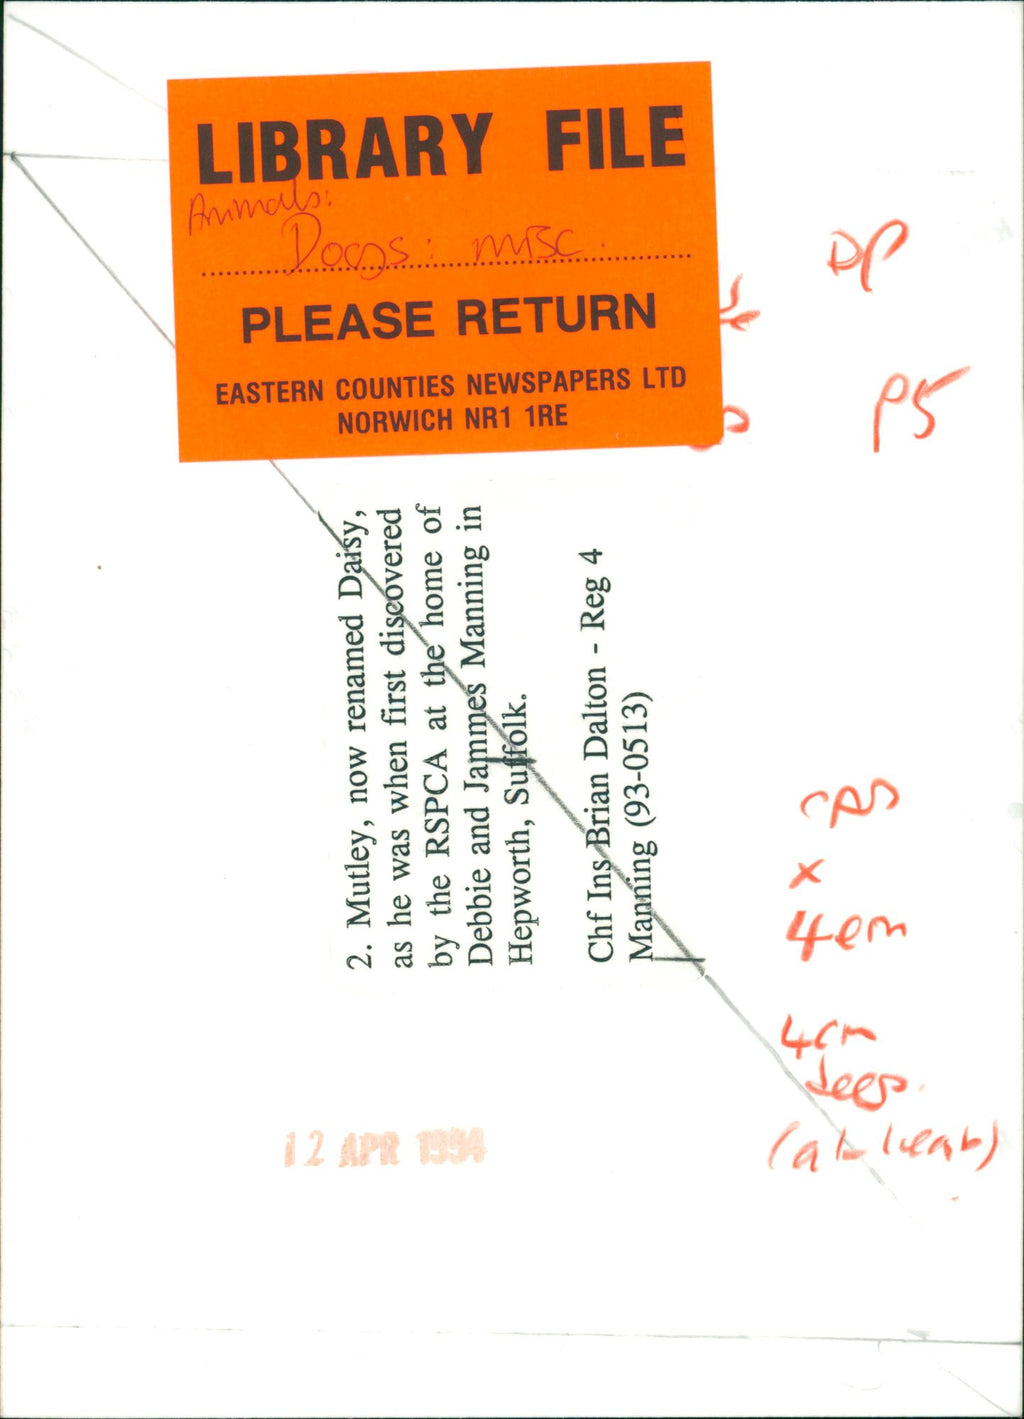 LIBRARY FILE
Animals:
Dogs: misc.
PLEASE RETURN
EASTERN COUNTIES NEWSPAPERS LTD
NORWICH NR1 1RE
DP
P5
2. Mutley, now renamed Daisy,
as he was when first discovered
by the RSPCA at the home of
Debbie and Jammes Manning in
Hepworth, Suffolk.
Chf Ins Brian Dalton - Reg 4
Manning (93-0513)
x
4cm
4cm
deep.
(at least)
12 APR 1994